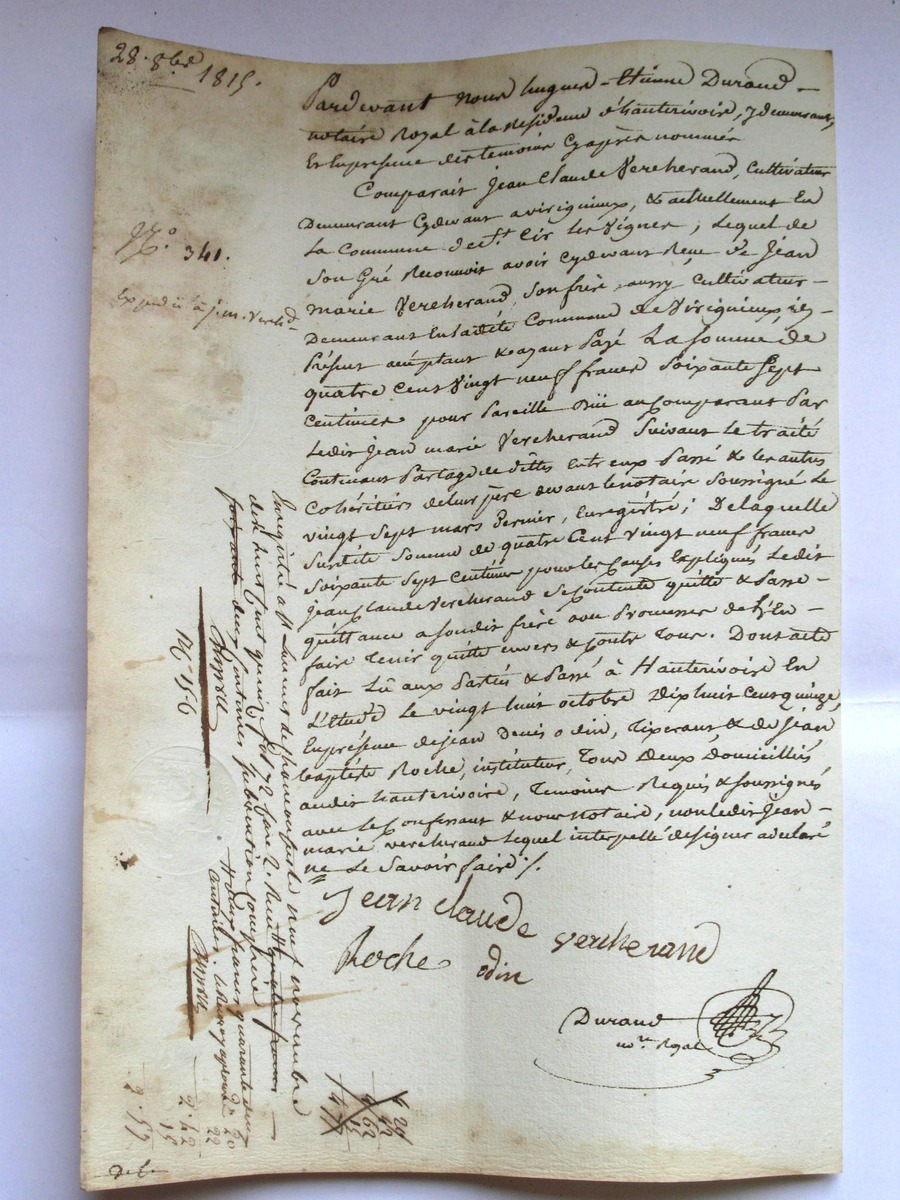 28. 8bre 1815.
N.° 341.
Expédié à j. m. Verch.d
Pardevant nous hugues-Etienne Durand
notaire Royal à la Residence d'hauterivoire, y demeurant,
Et En presence des temoins Cyaprès nommés
Comparait Jean Claude Vercherand, Cultivateur
Demeurant Cydevant a virigneux, & actuellement En
La Commune de St Cir les Vignes, Lequel de
Son Gré Reconnoit avoir Cydevant Recu de Jean
marie Vercherand, Son frère, aussy Cultivateur
Demeurant En ladite Commune de Virigneux, ici
Présent acceptant & ayant Payé La Somme de
quatre Cent Vingt neuf francs Soixante Sept
Centimes pour Pareille Düe au Comparant Par
Ledit Jean marie Vercherand Suivant le traité
Contenant Partage de dettes Entr'eux Passé & les autres
Cohéritiers de leur père devant le notaire Soussigné Le
vingt Sept mars Dernier, Enregistré; De laquelle
Susdite Somme de quatre Cent Vingt neuf francs
Soixante Sept Centimes pour les Causes Expliqués Ledit
jean Claude Vercherand Se Contente quitte & Passe
quittance a Son dit frère avec Promesse de L'En
faire Tenir quitte envers & Contre Tous. Dont acte
fait Lû aux Parties & Passé à Hauterivoire En
L'Etude Le vingt huit octobre Dix huit Cent quinze,
En présence de jean Denis odin, Tixerant, & de Jean
baptiste Roche, instituteur, Tous Deux Domiciliés
audit hauterivoire, Temoins Requis & Soussignés
avec Le Confessant & nous notaire, non ledit Jean
marie vercherand Lequel interpellé de Signer a declaré
ne Le Savoir faire ./.
Jean claude vercherand
Roche odin
Durand
no.re Royal
Enregistré à St Laurent de chamousset le neuf novembre
dix huit cent quinze fol. 72 Case 2. Reçu quatre francs
deux francs quarante deux
centimes
M. 156
2. 20
22
2. 42
15
2. 57
4 29